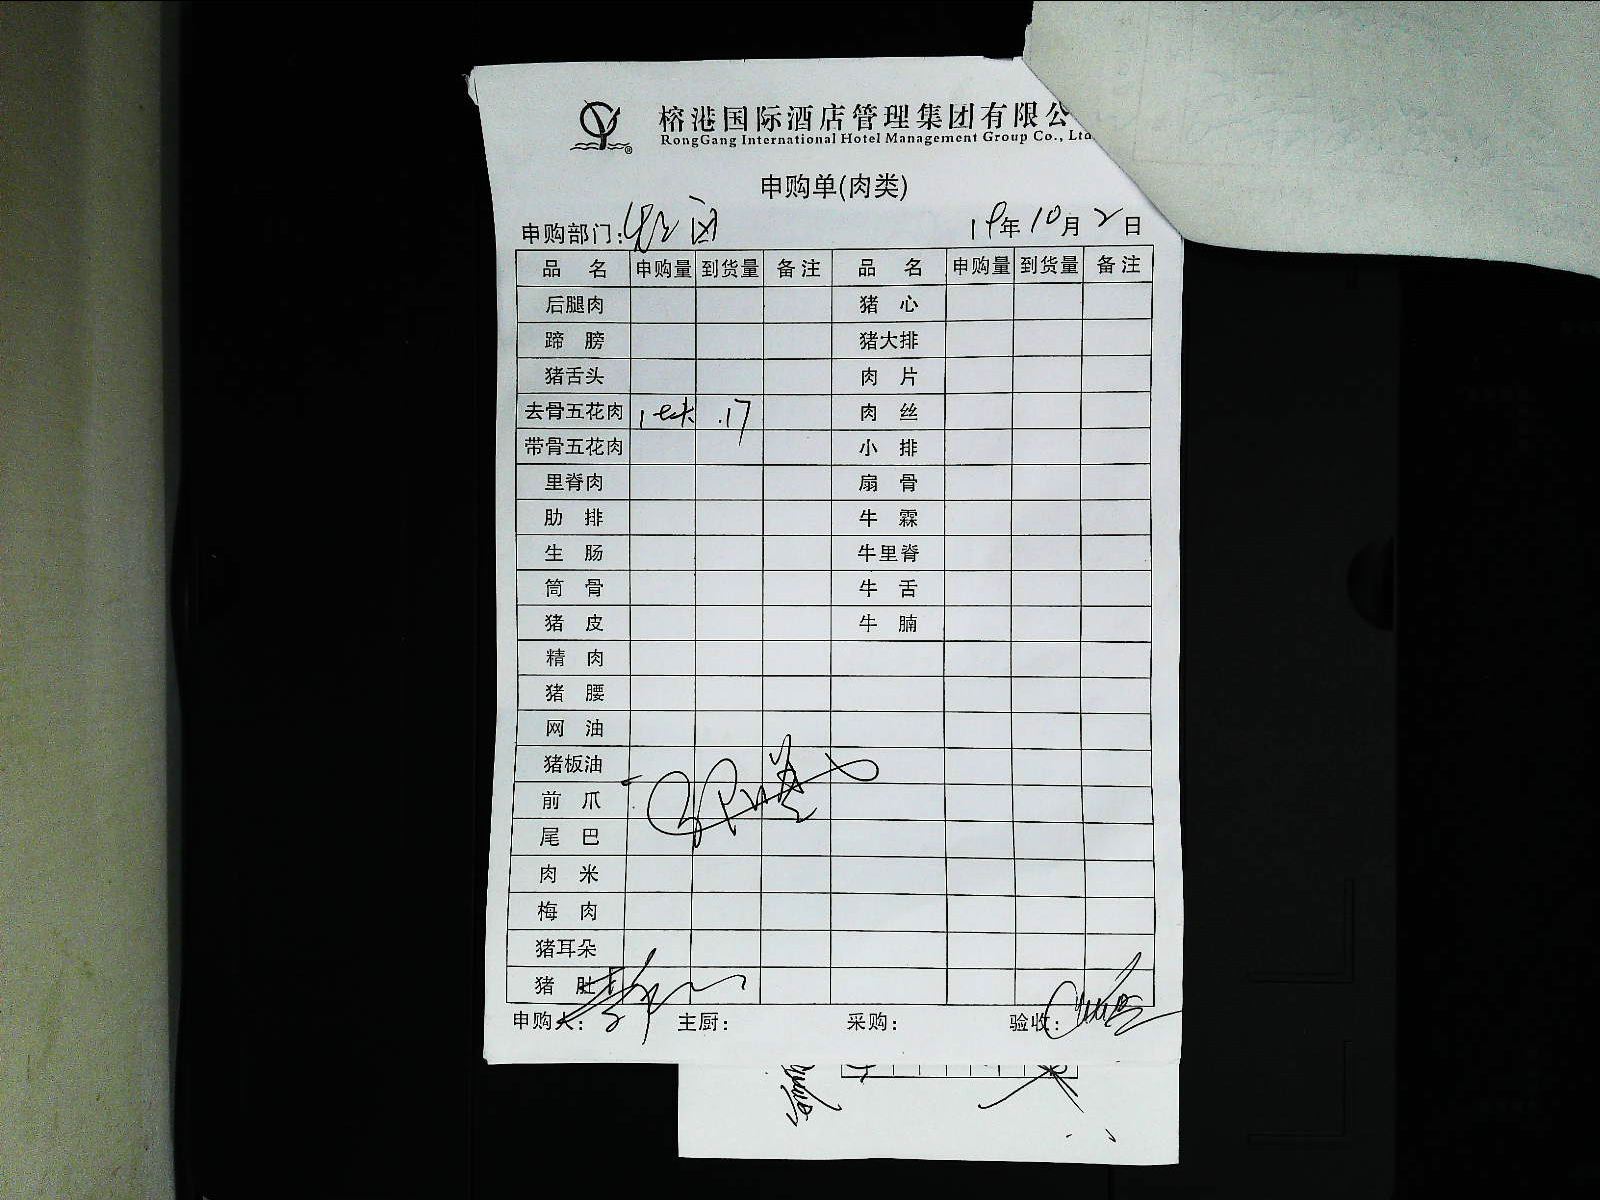 榕港国际酒店管理集团有限公
RongGang International Hotel Management Group Co., Ltd
申购单(肉类)
申购部门: 19年10月2日
品名 申购量 到货量 备注 品名 申购量 到货量 备注
后腿肉 猪心
蹄膀 猪大排
猪舌头 肉片
去骨五花肉 17 肉丝
带骨五花肉 小排
里脊肉 扇骨
肋排 牛霖
生肠 牛里脊
筒骨 牛舌
猪皮 牛腩
精肉
猪腰
网油
猪板油
前爪
尾巴
肉米
梅肉
猪耳朵
猪肚
申购人: 主厨: 采购: 验收: